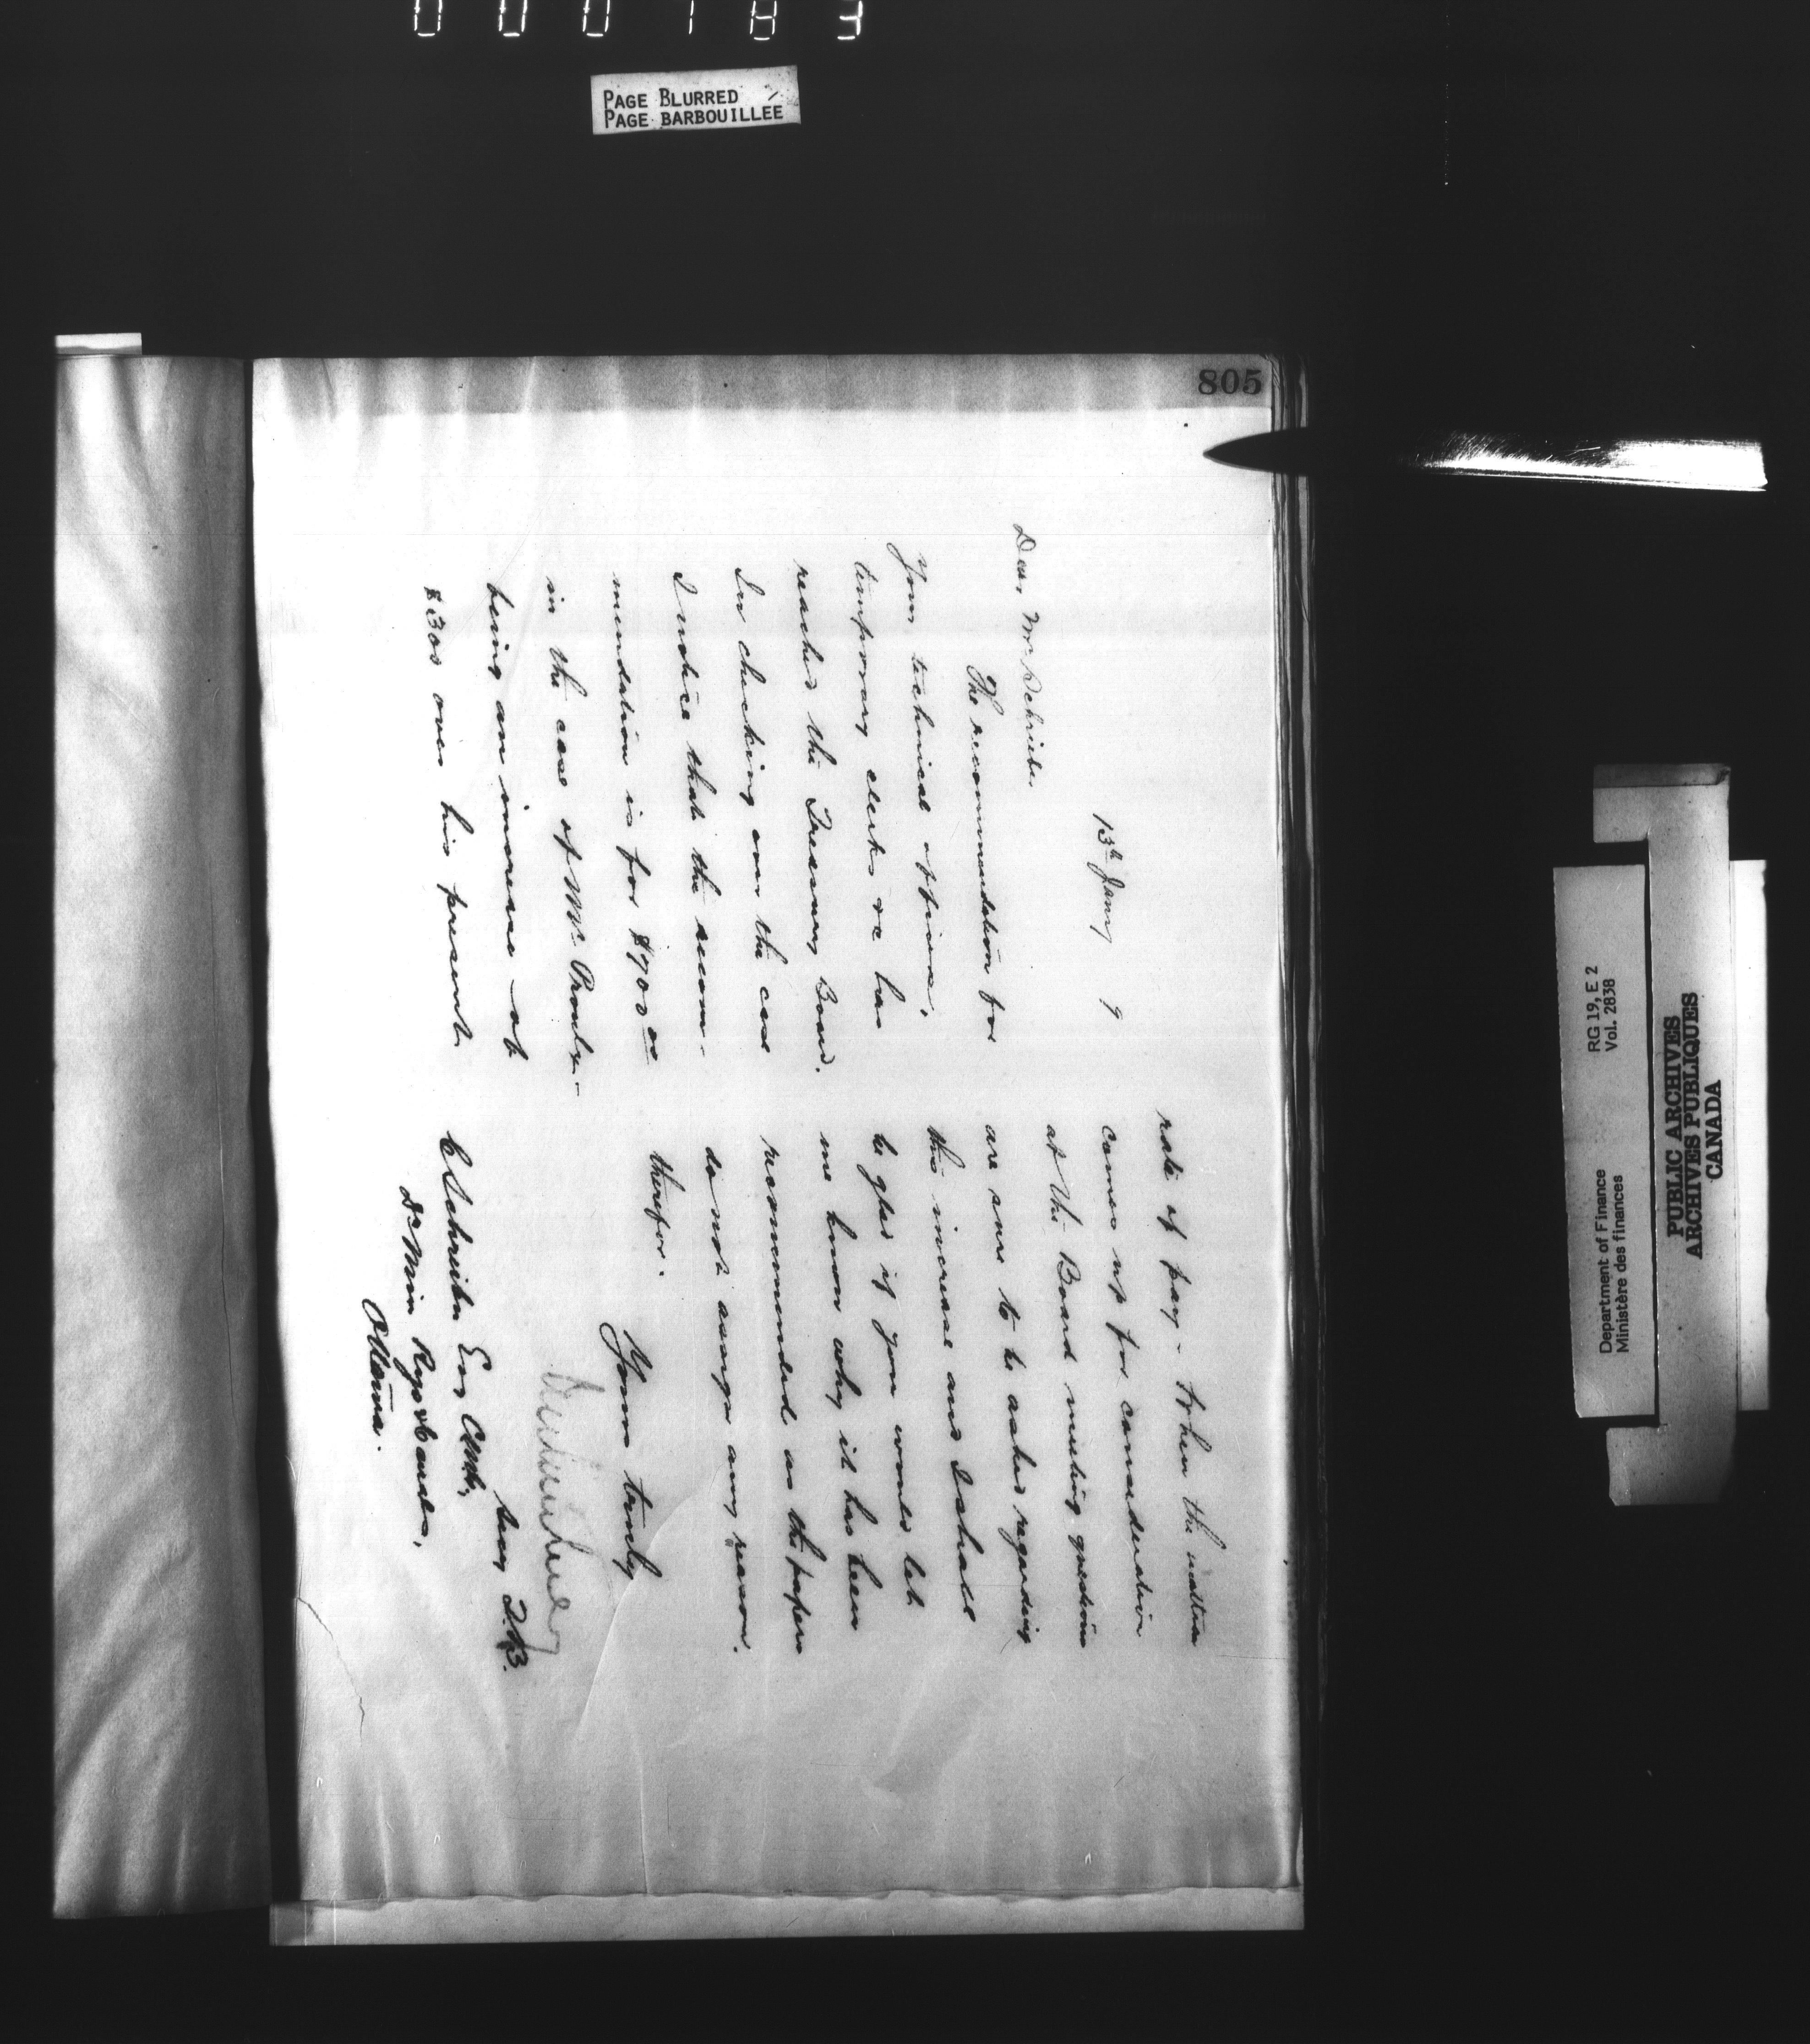 000183
PAGE BLURRED
PAGE BARBOUILLEE
805
13th Jany 9
Dear Mr Schreiber
The recommendation for
your technical officers,
temporary clerks &c has
reached the Treasury Board.
In checking over the case
I notice that the recom-
mendation is for $900 00
in the case of Mr.
being an increase of
$300 over his present
rate of pay - When the matter
comes up for consideration
at the Board meeting questions
are sure to be asked regarding
this increase and I shall
be glad if you would let
me know why it has been
recommended as the papers
do not assign any reason
therefor.
Yours truly
Secy T.B.
C Schreiber Esq CMG,
D. Min Rys & Canals,
Ottawa.
RG 19, E 2
Vol. 2838
Department of Finance
Ministère des finances
PUBLIC ARCHIVES
ARCHIVES PUBLIQUES
CANADA